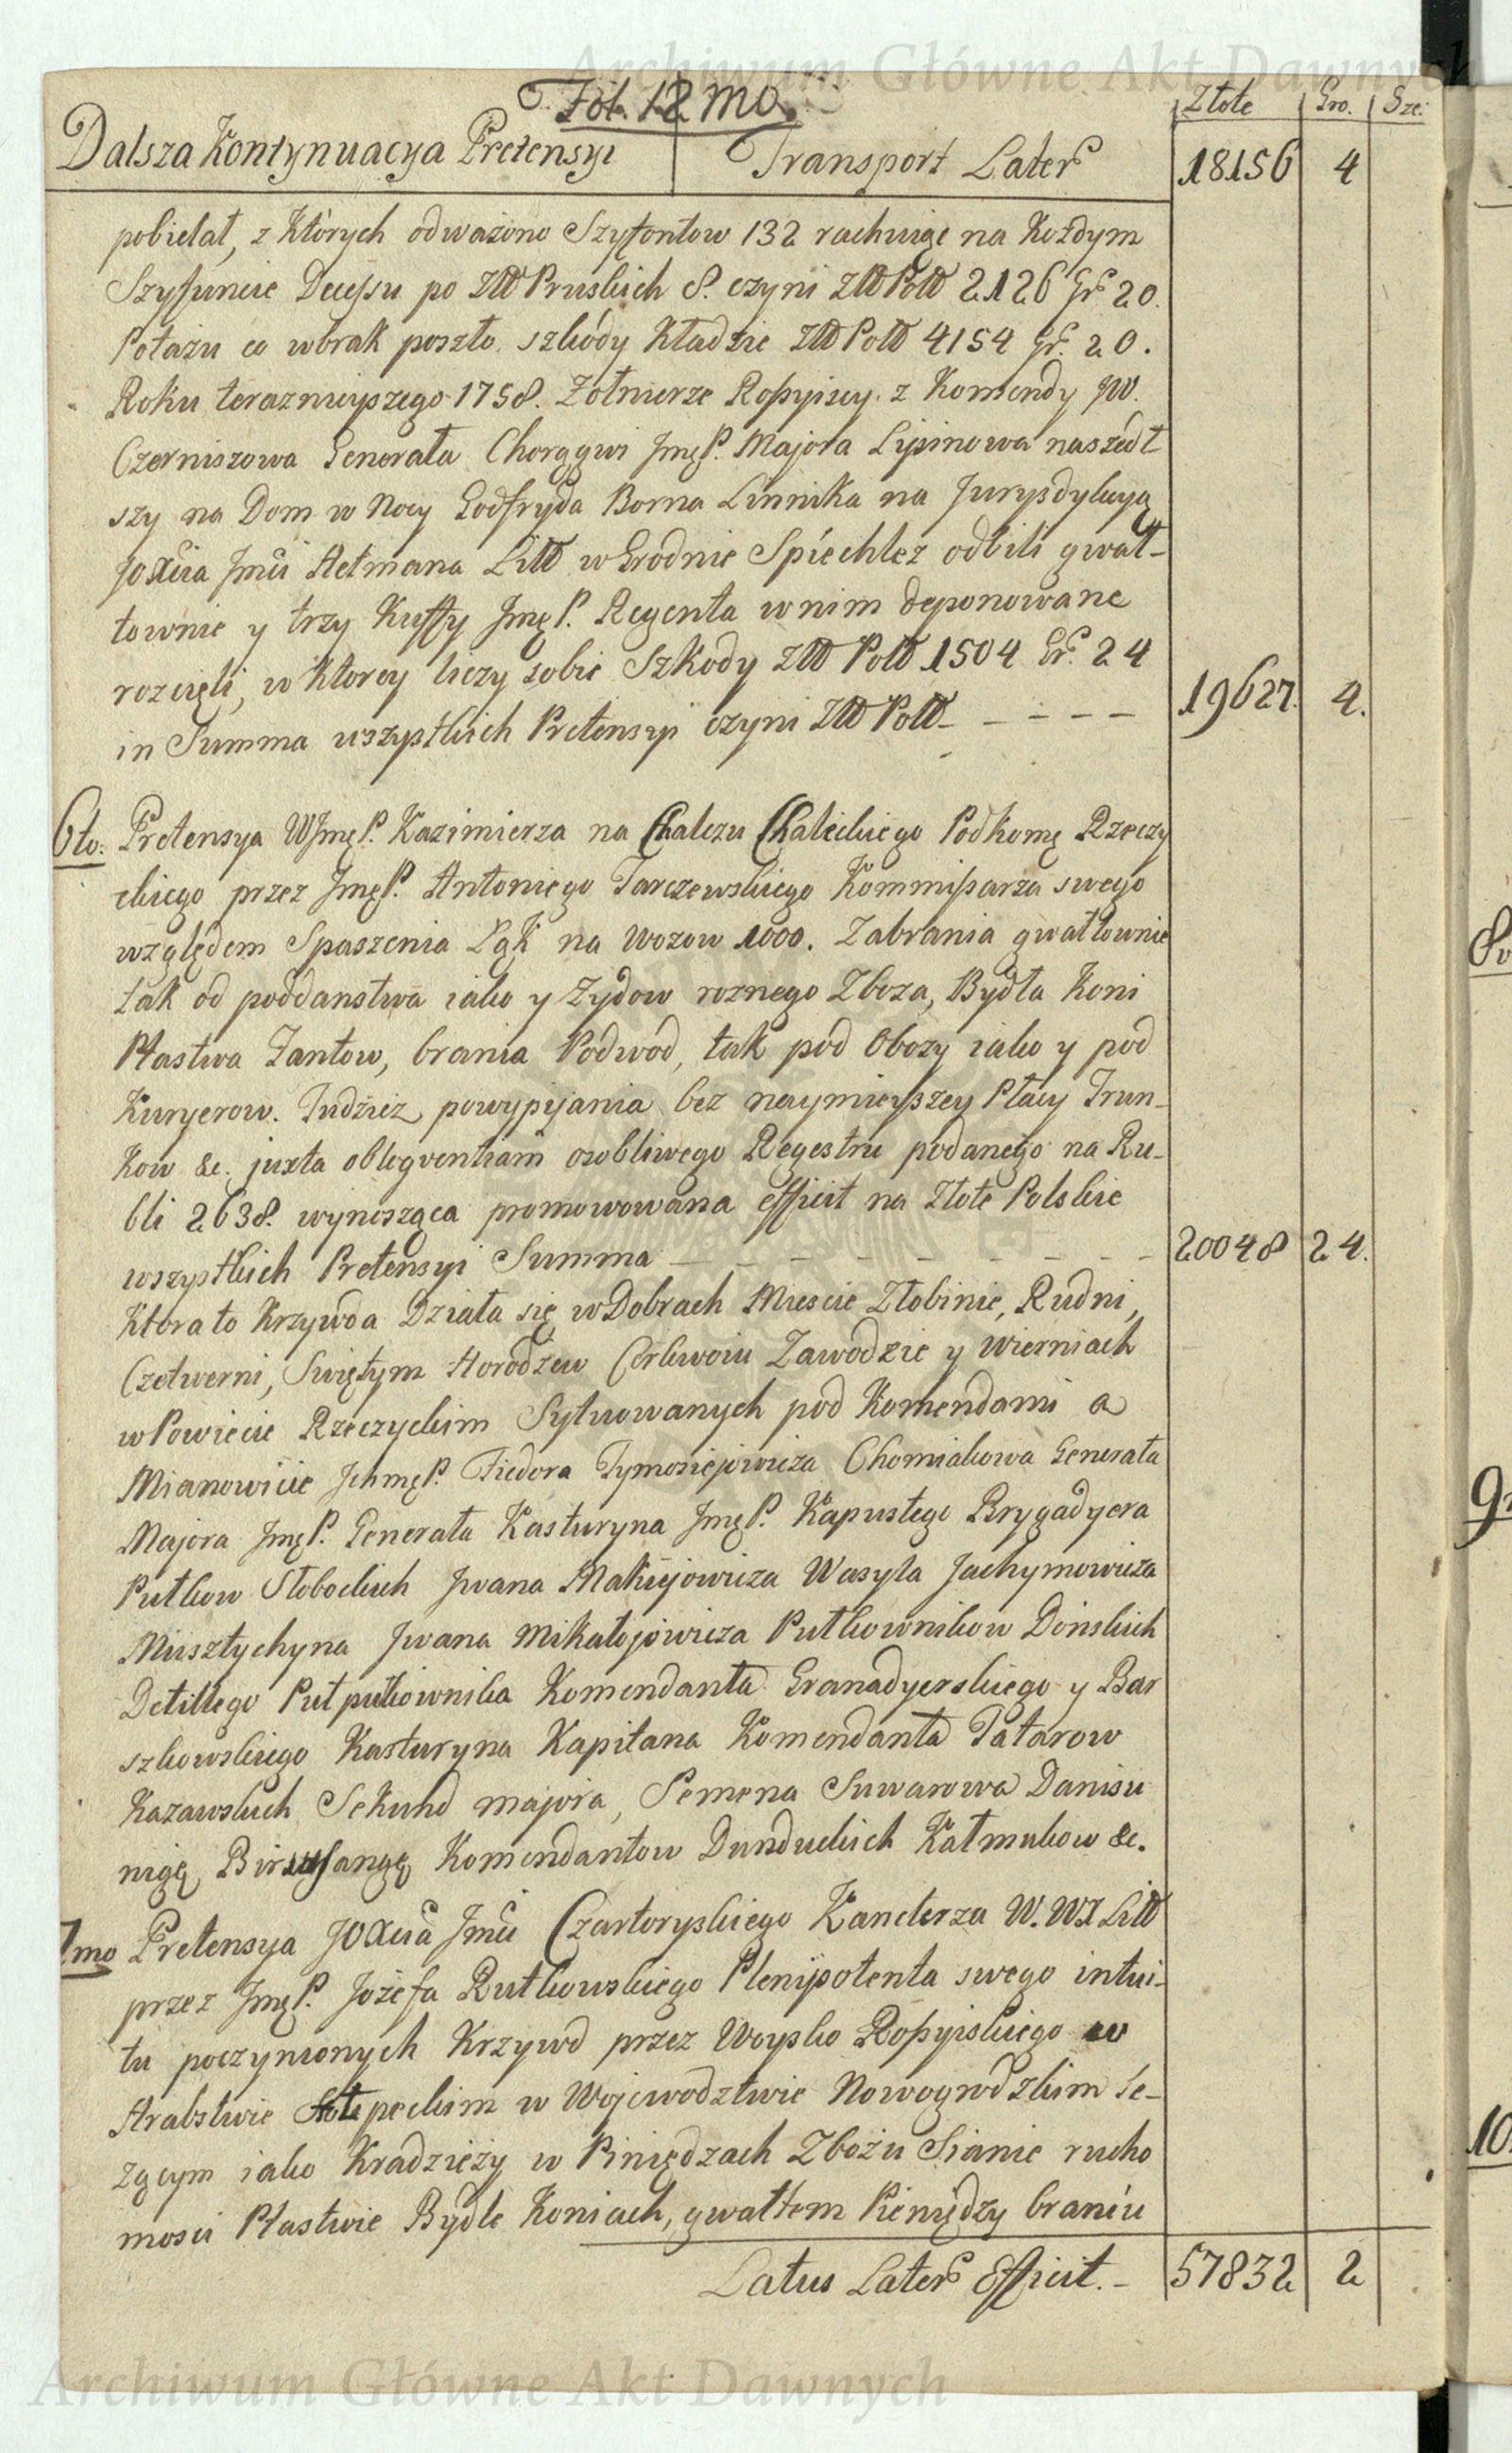 Archiwum Główne Akt Dawnych
Fol. 12mo.
Złote Gro. Sze:
Dalsza Kontynuacya Pretensyi Transport Later
18156 4
pobielał, z których odważono Szyfontow 132 rachuige na Kożdym
Szyfuncie Decessu po Złt Pruskich 8. czyni Złt Poll 2126 Gr 20.
Potażu co wbrak poszło szkody Kładzie Złt Poll 4154 Gr. 20.
Roku teraznieyszego 1758. Zołnierze Rossyiscy z Komendy JW.
Czerniszowa Generała Chorągwi JmęP. Majora Lipinowa naszedł
szy na Dom w Nocy Godfryda Borna Linnika na Jurysdykcyą
JOXcia Jmci Hetmana Litt w Grodnie Spiechlez odbili gwał-
townie y trzy Kuffy JmęP. Regenta w nim deponowane
rozcięli, w ktorey liczy sobie Szkody Złt Poll 1504 Gr. 24
in Summa wszystkich Pretensyi czyni Złt Poll - - - - - 19627. 4.
6to. Pretensya WJmęP. Kazimierza na Chalczu Chaleckiego Podkomę Rzeczy
ckiego przez JmęP. Antoniego Tarczewskiego Kommissarza swego
względem Spaszenia Łąk na wozow 1000. Zabrania gwałtownie
tak od poddanstwa iako y Zydow roznego Zboza, Bydła Koni
Ptastwa Fantow, brania Podwod, tak pod Obozy iako y pod
Kuryerow. Tudziez powypijania bez naymieyszey Płacy Trun-
kow &c. juxta obloquentiam osobliwego Regestru podanego na Ru-
bli 2638. wynosząca promowowana efficit na Złote Polskie
wszystkich Pretensyi Summa - - - - - - - - 20048 24.
Ktora to Krzywda Działa się w Dobrach Miescie Złobinie, Rudni,
Czetwerni, Swiętym Horodzew Cerkwoiu Zawodzie y Wierniach
w Powiecie Rzeczyckim Sytuowanych pod Komendami a
Mianowicie JchmęP. Fiedora Tymosiejowicza Chomiakowa Generała
Majora JmęP. Generała Kasturyna JmęP. Kapustego Brygadyera
Pułkow Słobockich Jwana Makiejowicza Wasyla Jachymowicza
Misztychyna Jwana Mikałojowicza Pułkownikow Dońskich
Detillego Pułpułkownika Komendanta Granadyerskiego y Bar
szkowskiego Kasturyna Kapitana Komendanta Tatarow
Kazawskich Sekund majora, Semena Suwarowa Danisu
nigę Komendantow Dunduckich Kałmukow &c.
7mo Pretensya JOXcia Jmci Czartoryskiego Kanclerza W. WX Litt
przez JmęP. Józefa Rutkowskiego Plenipotenta swego intui-
tu poczynionych Krzywd przez Woysko Rossyiskiego w
Hrabstwie w Wojewodztwie Nowogrodzkim le-
żącym iako Kradzieży w Piniędzach Zbożu Sianie rucho
mosci Ptastwie Bydle Koniach, gwałtem Pieniędzy braniu
Latus Later Efficit. - 57832 2
Archiwum Główne Akt Dawnych